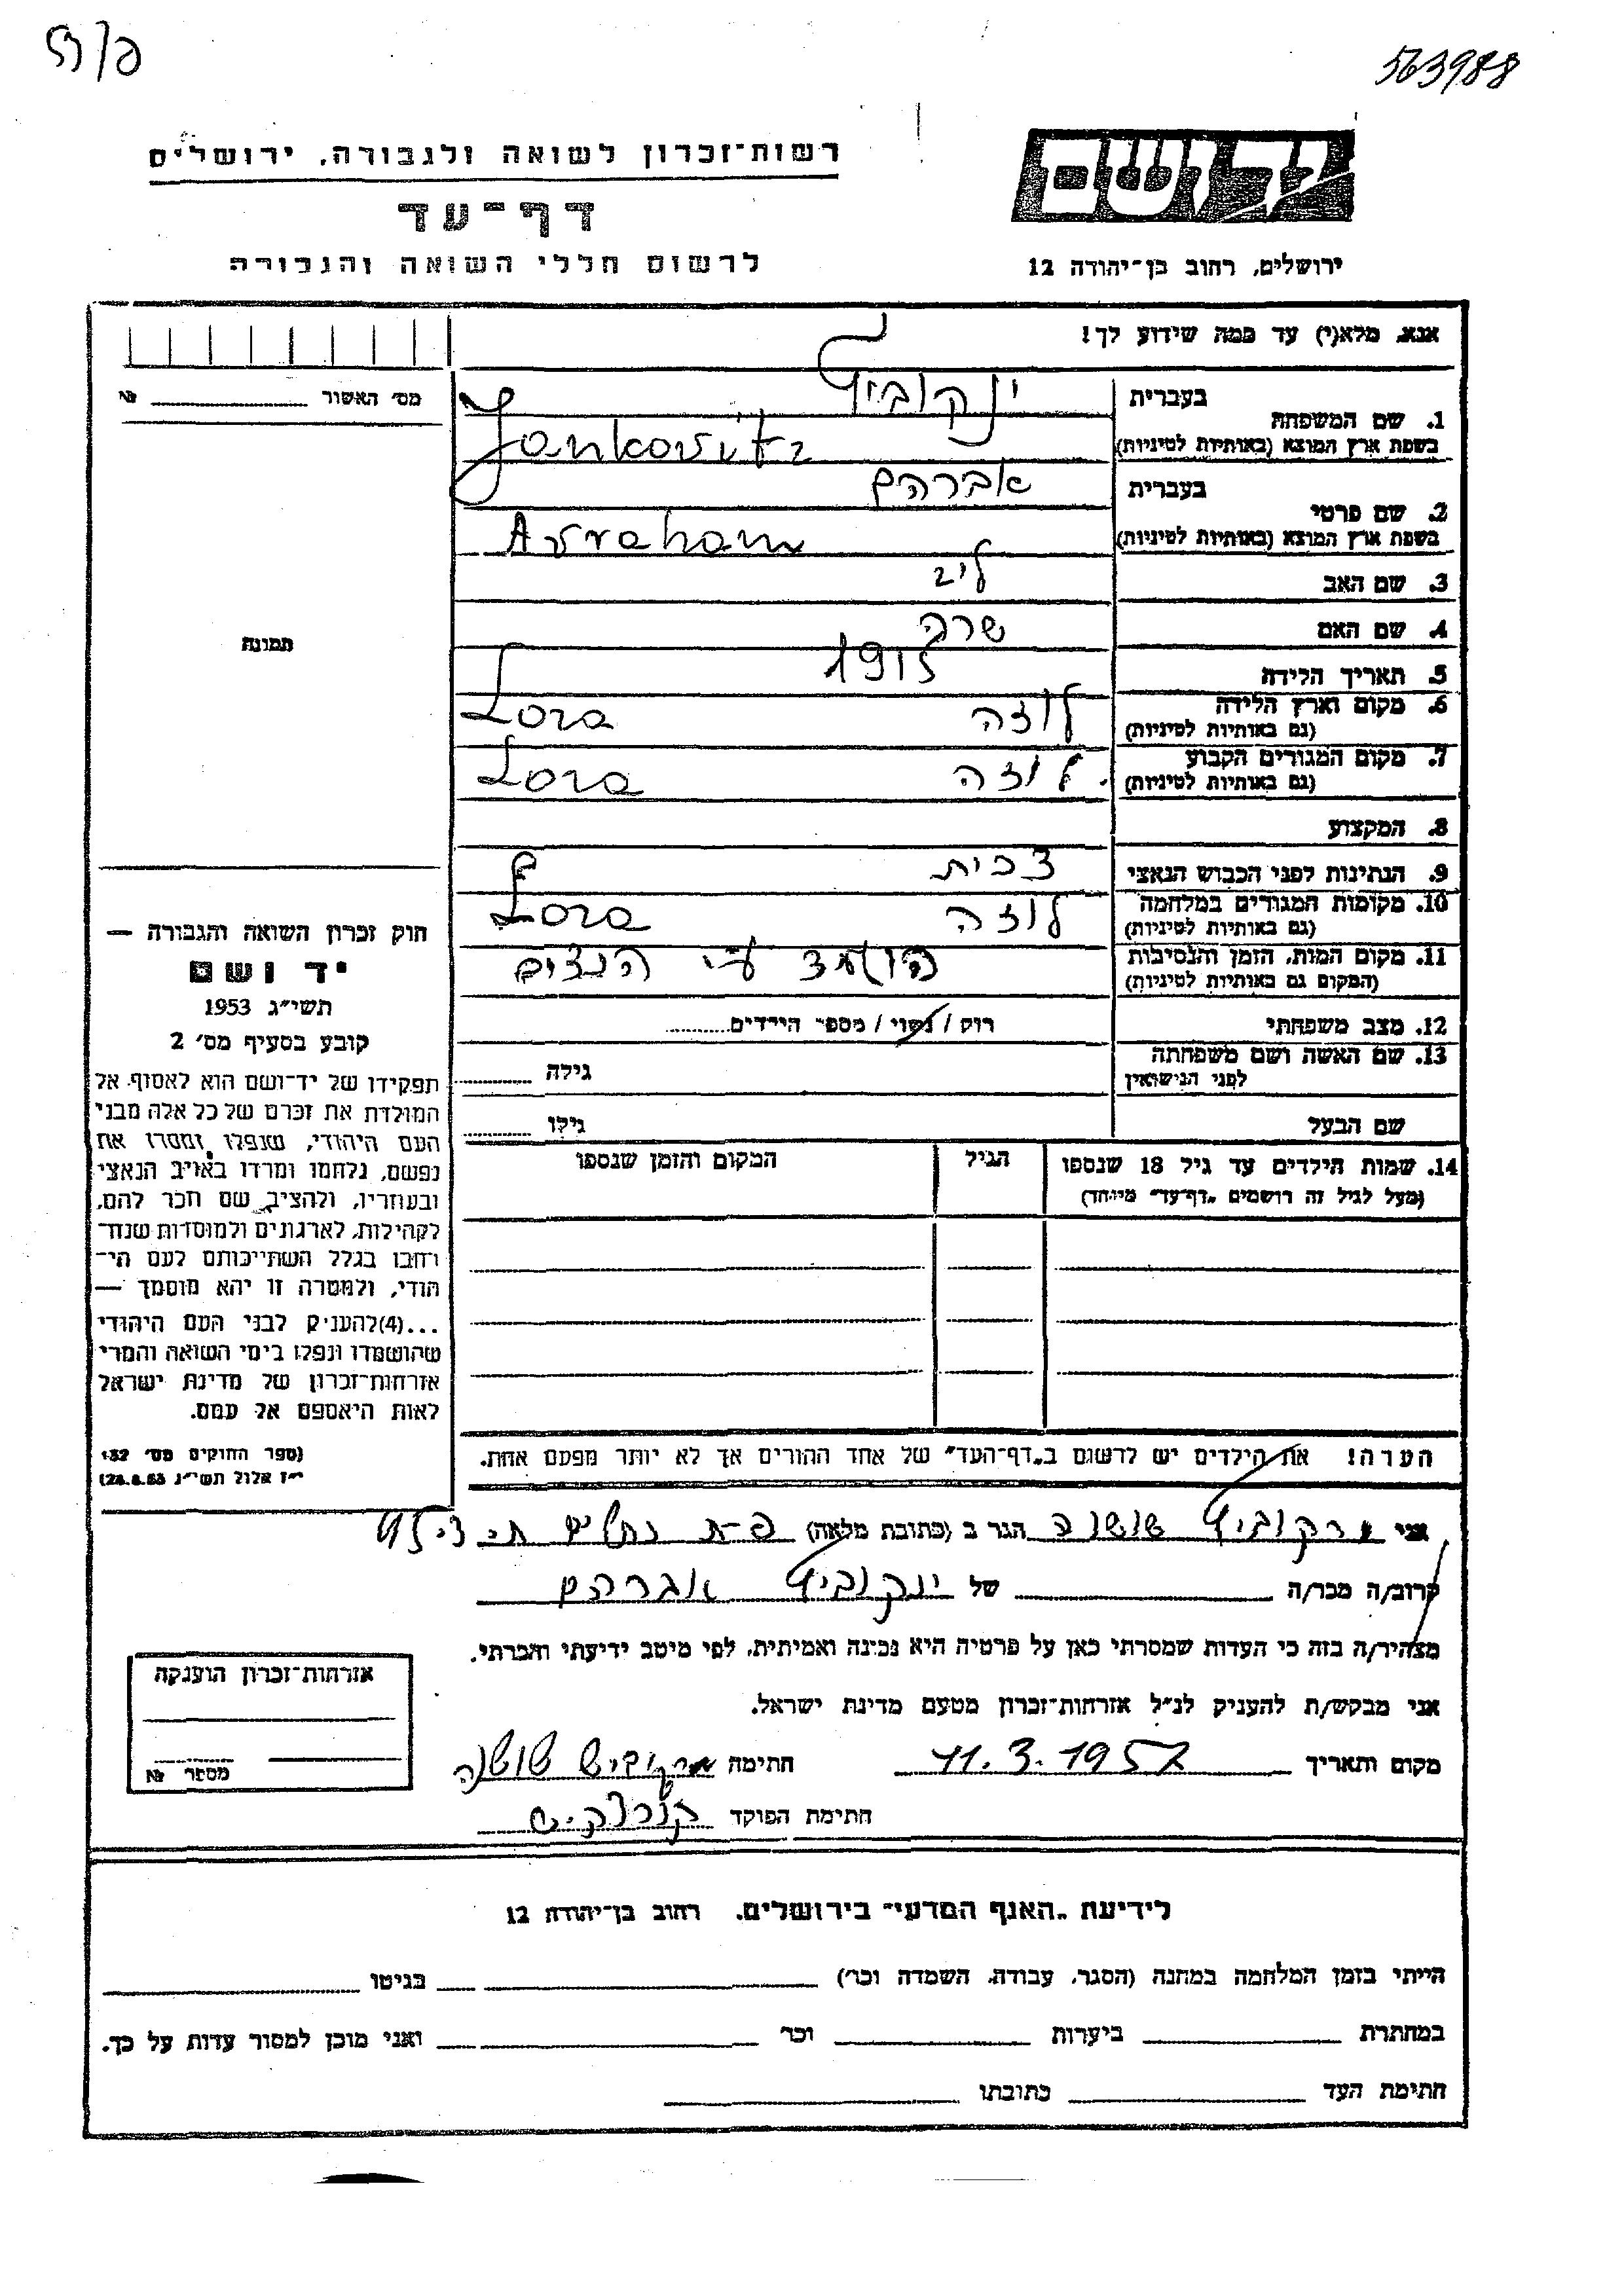 563988
רשות־זכרון לשואה ולגבורה, ירושלים
יד ושם
דף־עד
לרשום חללי השואה והגבורה
ירושלים, רחוב בן־יהודה 12
אנא, מלא(י) עד כמה שידוע לך!
מס׳ האשור № 
1. שם המשפחה
בעברית ינקוביץ
בשפת ארץ המוצא (באותיות לטיניות) Jankovitz
2. שם פרטי
בעברית אברהם
בשפת ארץ המוצא (באותיות לטיניות) Avraham
3. שם האב ליב
4. שם האם שרה
תמונה
5. תאריך הלידה 1915
6. מקום וארץ הלידה לוזה Loza
(גם באותיות לטיניות)
7. מקום המגורים הקבוע לוזה Loza
(גם באותיות לטיניות)
8. המקצוע
9. הנתינות לפני הכבוש הנאצי צכית
10. מקומות המגורים במלחמה לוזה Loza
(גם באותיות לטיניות)
11. מקום המות, הזמן והנסיבות ע״י הנצים
(המקום גם באותיות לטיניות)
12. מצב משפחתי רווק / נשוי / מספר הילדים
13. שם האשה ושם משפחתה גילה
לפני הנישואין
שם הבעל גילו
14. שמות הילדים עד גיל 18 שנספו הגיל המקום והזמן שנספו
(מעל לגיל זה רושמים „דף־עד״ מיוחד)
חוק זכרון השואה והגבורה —
יד ושם
תשי״ג 1953
קובע בסעיף מס׳ 2
תפקידו של יד־ושם הוא לאסוף אל
המולדת את זכרם של כל אלה מבני
העם היהודי, שנפלו ומסרו את
נפשם, נלחמו ומרדו באויב הנאצי
ובעוזריו, ולהציב שם וזכר להם,
לקהילות, לארגונים ולמוסדות שנח־
רחבו בגלל השתייכותם לעם הי־
הודי, ולמטרה זו יהא מוסמך —
...(4)להעניק לבני העם היהודי
שהושמדו ונפלו בימי השואה והמרי
אזרחות־זכרון של מדינת ישראל
לאות היאספם אל עמם.
(ספר החוקים מס׳ 132
י״ז אלול תשי״ג 28.8.53)
הערה! את הילדים יש לרשום ב„דף־העד״ של אחד ההורים אך לא יותר מפעם אחת.
אני מרקוביץ שושנה הגר ב (כתובת מלאה)
קרוב/ה מכר/ה של ינקוביץ אברהם
מצהיר/ה בזה כי העדות שמסרתי כאן על פרטיה היא נכונה ואמיתית, לפי מיטב ידיעתי והכרתי.
אני מבקש/ת להעניק לנ״ל אזרחות־זכרון מטעם מדינת ישראל.
מקום ותאריך 11.3.1957 חתימה מרקוביץ שושנה
חתימת הפוקד
אזרחות־זכרון הוענקה
מספר №
לידיעת „האגף המדעי״ בירושלים, רחוב בן־יהודה 12
הייתי בזמן המלחמה במחנה (הסגר, עבודה, השמדה וכו׳) בגיטו
במחתרת ביערות וכו׳ ואני מוכן למסור עדות על כך.
חתימת העד כתובתו